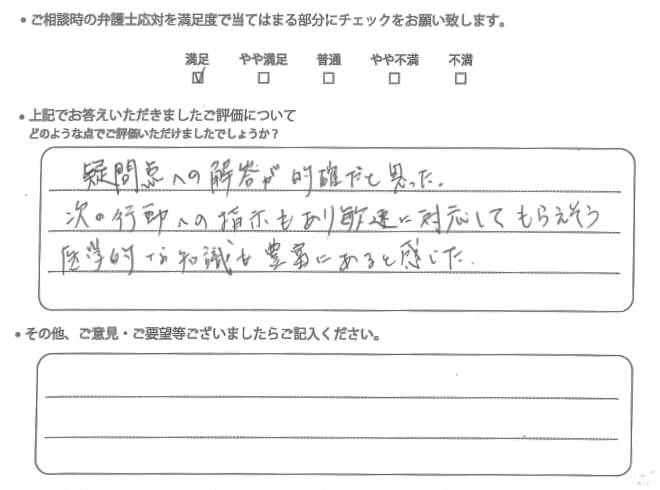 • ご相談時の弁護士応対を満足度で当てはまる部分にチェックをお願い致します。
満足 やや満足 普通 やや不満 不満
☑ ☐ ☐ ☐ ☐
• 上記でお答えいただきましたご評価について
どのような点でご評価いただけましたでしょうか？
疑問点への解答が的確だと思った。
次の行動への指示もあり敏速に対応してもらえそう
医学的な知識も豊富にあると感じた。
• その他、ご意見・ご要望等ございましたらご記入ください。